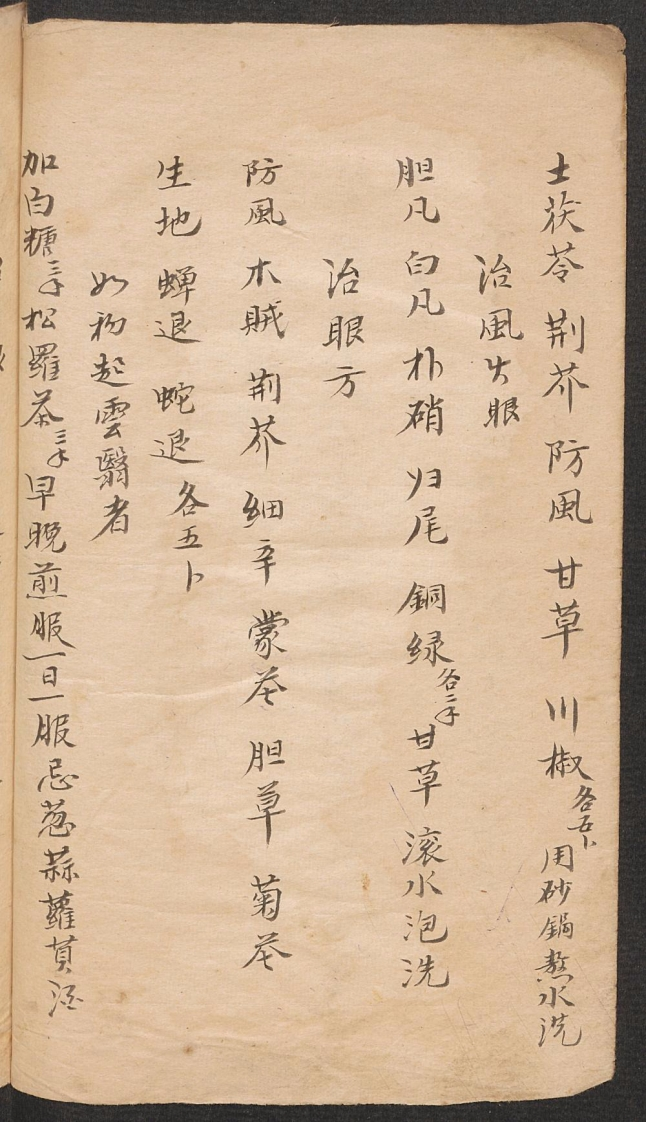 土茯苓 荆芥 防風 甘草 川椒各五卜 用砂鍋熬水洗
治風火眼
胆凡 白凡 朴硝 归尾 銅绿各二手 甘草 滚水泡洗
治眼方
防風 木賊 荆芥 細辛 蒙花 胆草 菊花
生地 蝉退 蛇退 各五卜
如初起雲翳者
加白糖三手松羅茶三手早晚煎服一日一服忌葱蒜蘿